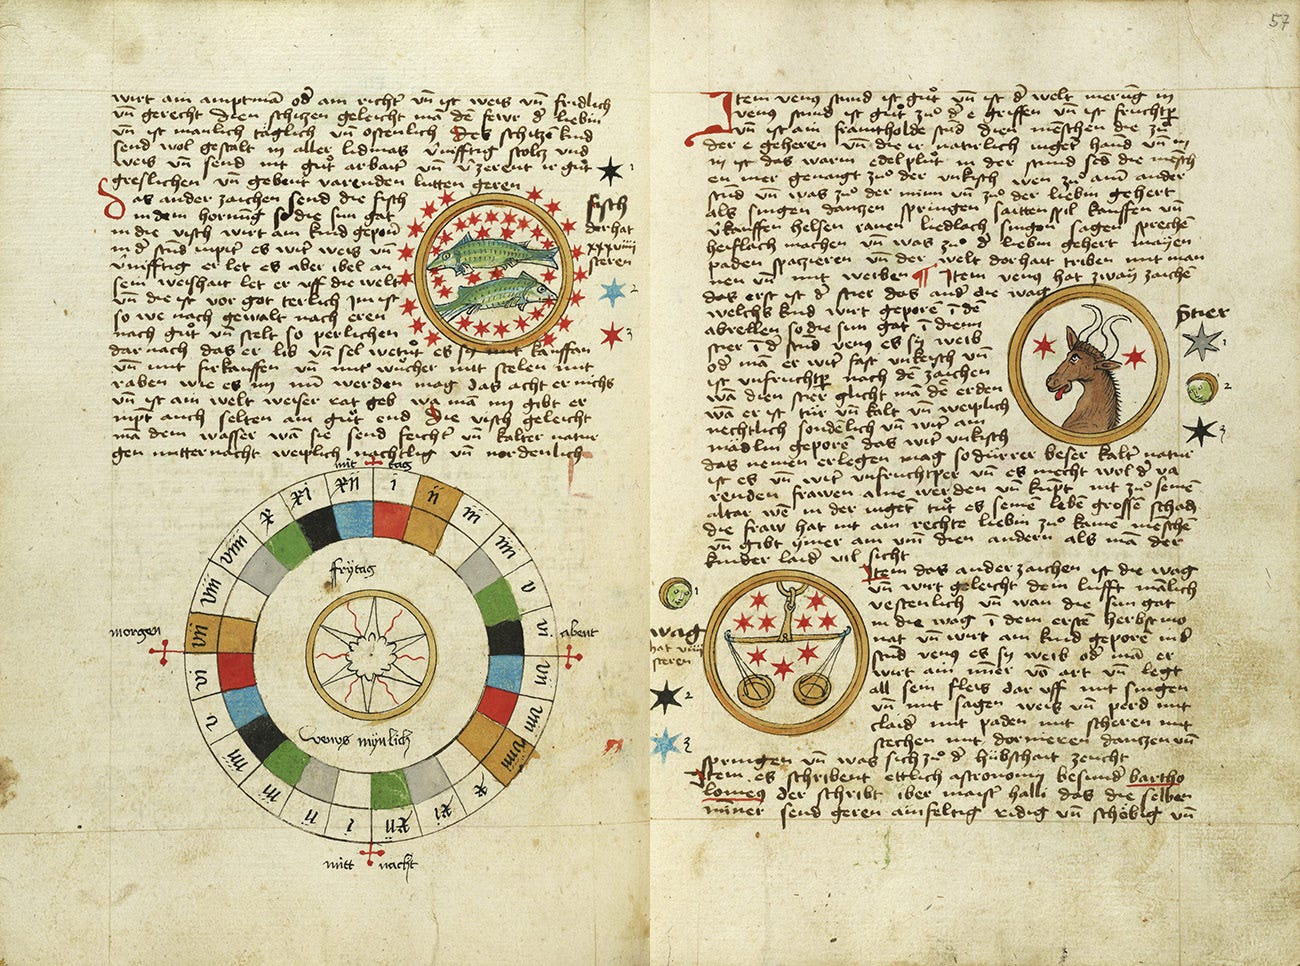 wirt am amptmā od̄ am richt̄ vn̄ ist weis vn̄ fridlich
vn̄ gerecht dien schitzen geleicht mā dē fewr d̄ liebin
vn̄ ist manlich täglich vn̄ östenlich Des schitzē kind
send wol gestalt in aller lidmas v̄nifftig stolcz vnd
weis vn̄ send mit guͦt arbait vn̄ v̄zerent ir guͦt
greslichen vn̄ gebent varenden lutten geren
Das ander zaichen send die fisch
in dem hornūg so die sun gat
in die visch wirt am kind geporn
in d̄ stūnd iupit̄ es wirt weis vn̄
v̄nifftig er let es aber ibel an
sein weishait let er vff die welt
vn̄ die ist vor got terlich im ist
so we nach gewalt nach eren
nach guͦt vn̄ stelt so perlichen
dar nach das er lib vn̄ sel wetuͦt es sy mit kauffen
vn̄ mit firkauffen vn̄ mit wuͦcher mit stelen mit
raben wie es im nū werden mag das acht er nichs
vn̄ ist am welt weiser rat geb wa mā im gibt er
nīpt auch selten am guͦt end Die visch geleicht
mā dem wasser wā sie send feicht vn̄ kalter natur
gen mitternacht weiplich nachtlig vn̄ nordenlich
fisch
der hat
xxxviiii
steren
1
2
3
mit tag
xii i ii iii iiii v vi vii viii viiii x xi xii i ii iii iiii v vi vii viii viiii x xi
frÿtag
morgen
abent
venus mÿnlich
mitt nacht
57
Item venus stund ist guͦt vn̄ ist d̄ welt merūg in
venus stund ist guͦt zuͦ d̄ e griffen vn̄ ist fruchtp̄
vn̄ ist am frantholde stūd dien mēschen die zuͦ
der e geheren vn̄ die ir natirlich iuget hand vn̄ in
in ist das warm edel pluͦt in der stund send die mēsch
en mer genaigt zuͦ der vnkisch wen zuͦ am̄ ander
stūd vn̄ was zuͦ der minn vn̄ zuͦ der liebin gehert
als singen danczen springen saittenspil kauffen vn̄
v̄kauffen helsen raien liedlach singen sagen sprechē
heiflich machen vn̄ was zuͦ d̄ liebin gehert mayen
paden spaczieren vn̄ der welt dorhait triben mit man
nen vn̄ mit weiben ¶ Item venus hat zwaÿ zaichē
das erst ist d̄ stier das and̄ die wag
welchs kind wirt geporē ī dē
abrellen so die sun gat ī dienn
stier ī d̄ stūd venus es sÿ weib
od̄ mā er wirt fast vnkisch vn̄
ist vnfruchtp̄ nach dē zaichen
wā dien stier glicht mā dē erden
wā er ist tiir vn̄ kalt vn̄ weiplich
nechtlich sondēlich vn̄ wirt am
mädlin geporē das wirt vnkisch
das nemen erlegen mag so dürrer beser kalt̄ natur
ist es vn̄ wirt vnfruchtper vn̄ es mecht wol d̄ va
renden frawen aine werden vn̄ kūpt nit zuͦ seinē
altar wē in der iuget tuͦt es seinē lebē grossē schad
die fraw hat nit am rechte liebin zuͦ kaine mēschē
vn̄ gibt ÿmer am vm̄ dien andern als mā der
kinder laid̄ vil sicht
Item das ander zaichen ist die wag
vn̄ wirt geleicht dem lufft mālich
vestenlich vn̄ wan die sun gat
in die wag ī dem erste herbstmo
nat vn̄ wirt am kind geporē in d̄
stūd venus es sÿ weib od̄ mā er
wirt am in̄er vō art vn̄ legt
all sein fleis dar vff mit singen
vn̄ mit sagen weis vn̄ perd mit
claid̄ mit paden mit scheren mit
stechen mit dornieren danczen vn̄
springen vn̄ was sich zuͦ d̄ hübschait zeucht
Item es schribent ettlich astronomÿ besund̄ bartho
lomeus der schribt iber maist̄ halli das die selben
mīner send geren ainfeltig ridig vn̄ schöbig vn̄
Stier
1
2
3
wag
hat viiii
steren
1
2
3